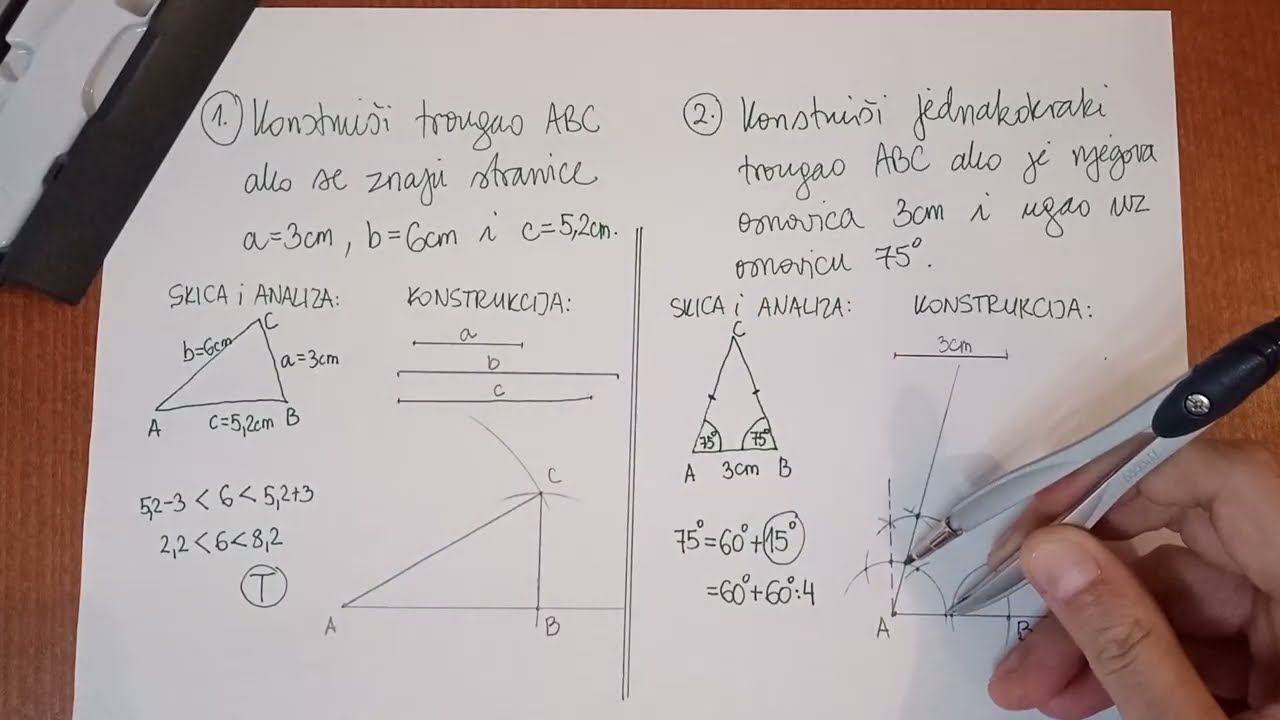 1. Konstruiši trougao ABC
ako se znaju stranice
a=3cm, b=6cm i c=5,2cm.
SKICA i ANALIZA:
KONSTRUKCIJA:
C
b=6cm
a=3cm
A
c=5,2cm
B
5,2-3 < 6 < 5,2+3
2,2 < 6 < 8,2
T
a
b
c
C
A
B
2. Konstruiši jednakokraki
trougao ABC ako je njegova
osnovica 3cm i ugao uz
osnovicu 75°.
SKICA i ANALIZA:
KONSTRUKCIJA:
C
75°
75°
A
3cm
B
75°=60°+15°
=60°+60°:4
3cm
A
B